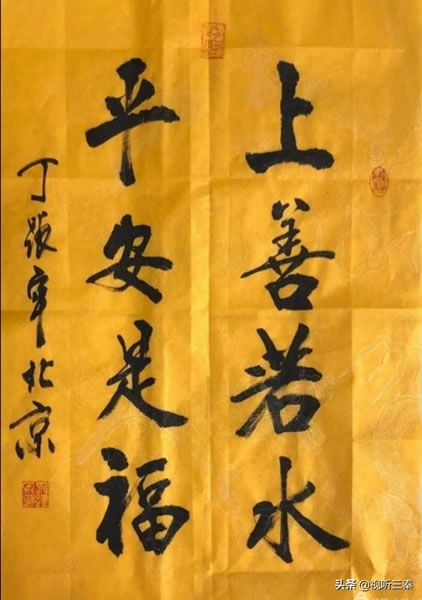 上善若水
平安是福
丁 北京
头条 @视听三秦